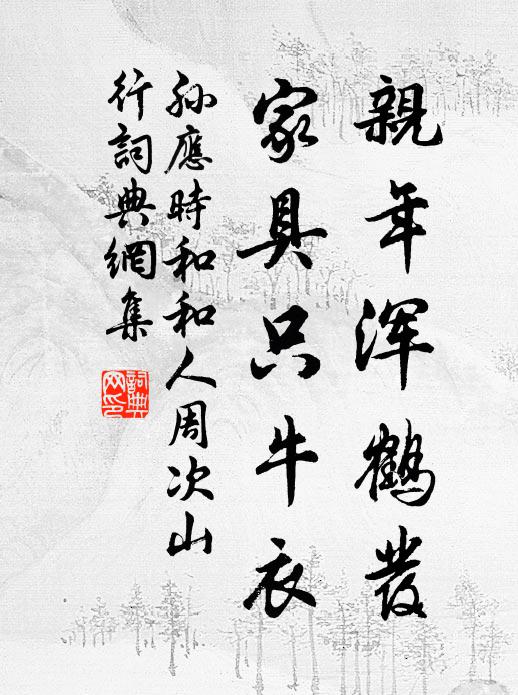 親年浑鶴发
家具只牛衣
孙應時和和人周次山
行詞典網集
詞典
网印